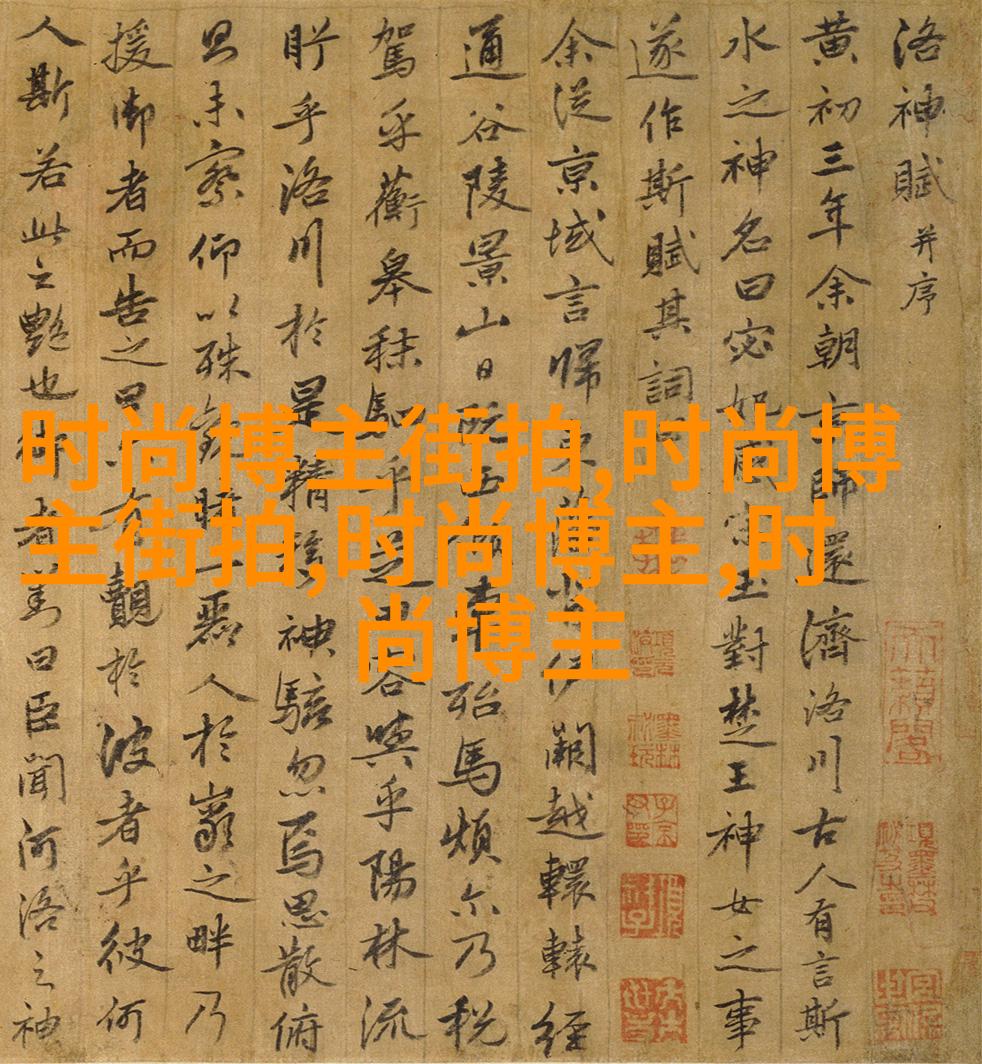 洛神賦并序
黄初三年余朝師還濟洛川古人有言斯
水之神名曰宓妃宋玉對楚王神女之事
遂作斯賦其詞
余從京域言歸東藩背伊闕越轘轅經
通谷陵景山日既西傾殆馬煩尓乃税
駕乎蘅皋秣駟乎芝田容與乎陽林流
眄乎洛川於是精移神駭忽焉思散俯
則未察仰以殊觀睹一麗人於巖之畔乃
援御者而告之曰尓有覿於彼者乎彼何
人斯若此之艷也御者對曰臣聞河洛之神
时尚博主街拍,时尚博
主街拍,时尚博主,时
尚博主